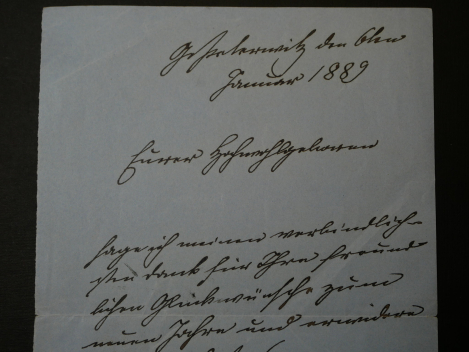 den 6ten
Januar 1889
Eurer Hochwohlgeboren
sage ich meinen verbindlich-
sten Dank für Ihre freund
lichen Glückwünsche zum
neuen Jahre und erwidere